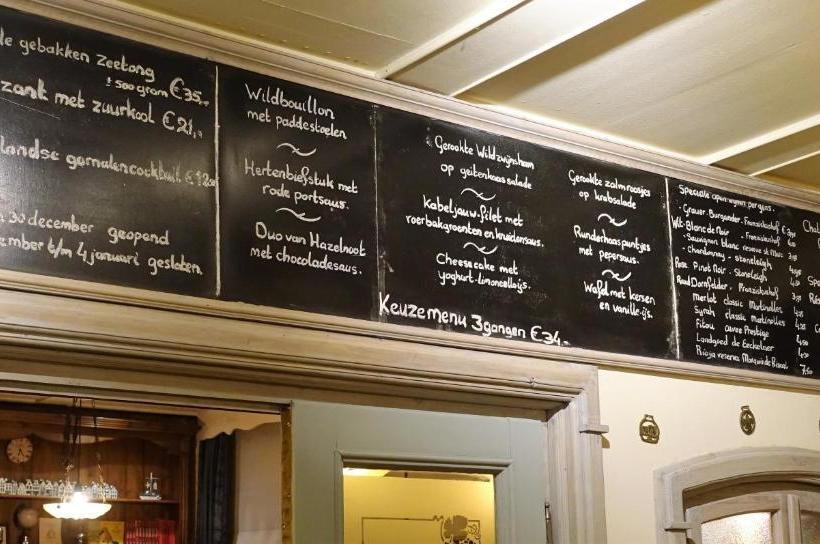 gebakken zeetong
± 500 gram €35,-
zant met zuurkool €21,-
landse garnalencocktail €12,50
30 december geopend
ember t/m 4 januari gesloten.
Wildbouillon
met paddestoelen
Hertenbiefstuk met
rode portsaus.
Duo van Hazelnoot
met chocoladesaus.
Gerookte Wildzwijnsham
op geitenkaassalade
Kabeljauw-filet met
roerbakgroenten en kruidensaus.
Cheesecake met
yoghurt-limoncelloijs.
Keuzemenu 3gangen €34,-
Gerookte zalmroosjes
op krabsalade
Runderhaaspuntjes
met pepersaus.
Wafel met kersen
en vanille-ijs.
Speciale open wijnen per glas.
- Grauer Burgunder - Franzishof
Wit - Blanc de Noir - Franzishof
- Sauvignon blanc reserve st Marc
- Chardonnay - stoneleigh
Rose Pinot Noir - Stoneleigh
Rood Dornfelder - Franzishof
merlot classic Martinolles
Syrah classic martinolles
Fitou cuvee Prestige
Landgoed de Eeckeleer
Rioja reserva